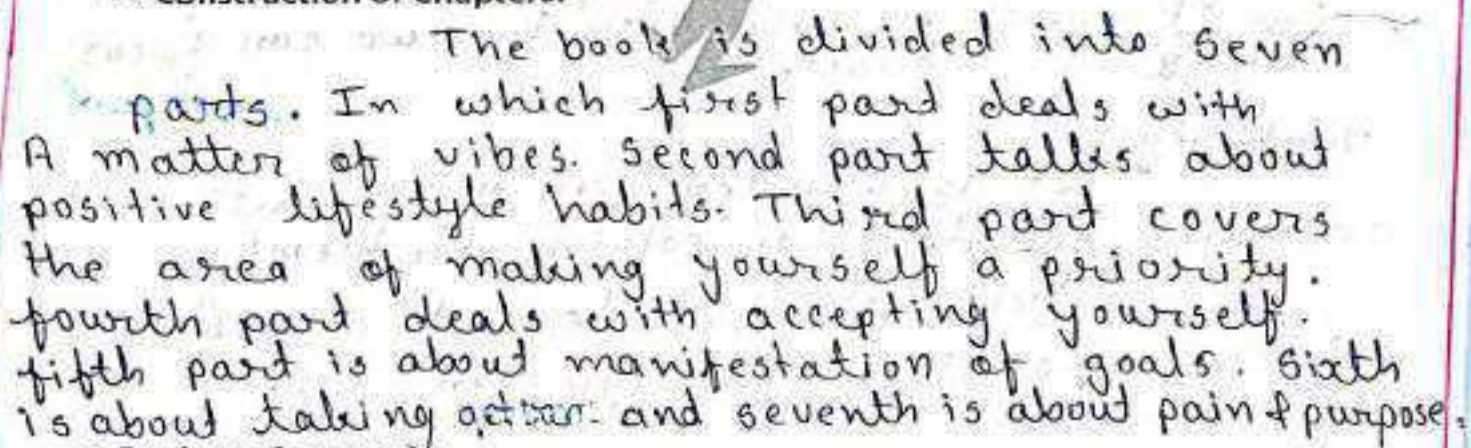 Construction of Chapters:
The book is divided into seven
parts. In which first part deals with
A matter of vibes. Second part talks about
positive lifestyle habits. Third part covers
the area of making yourself a priority.
fourth part deals with accepting yourself.
fifth part is about manifestation of goals. Sixth
is about taking action and seventh is about pain & purpose.